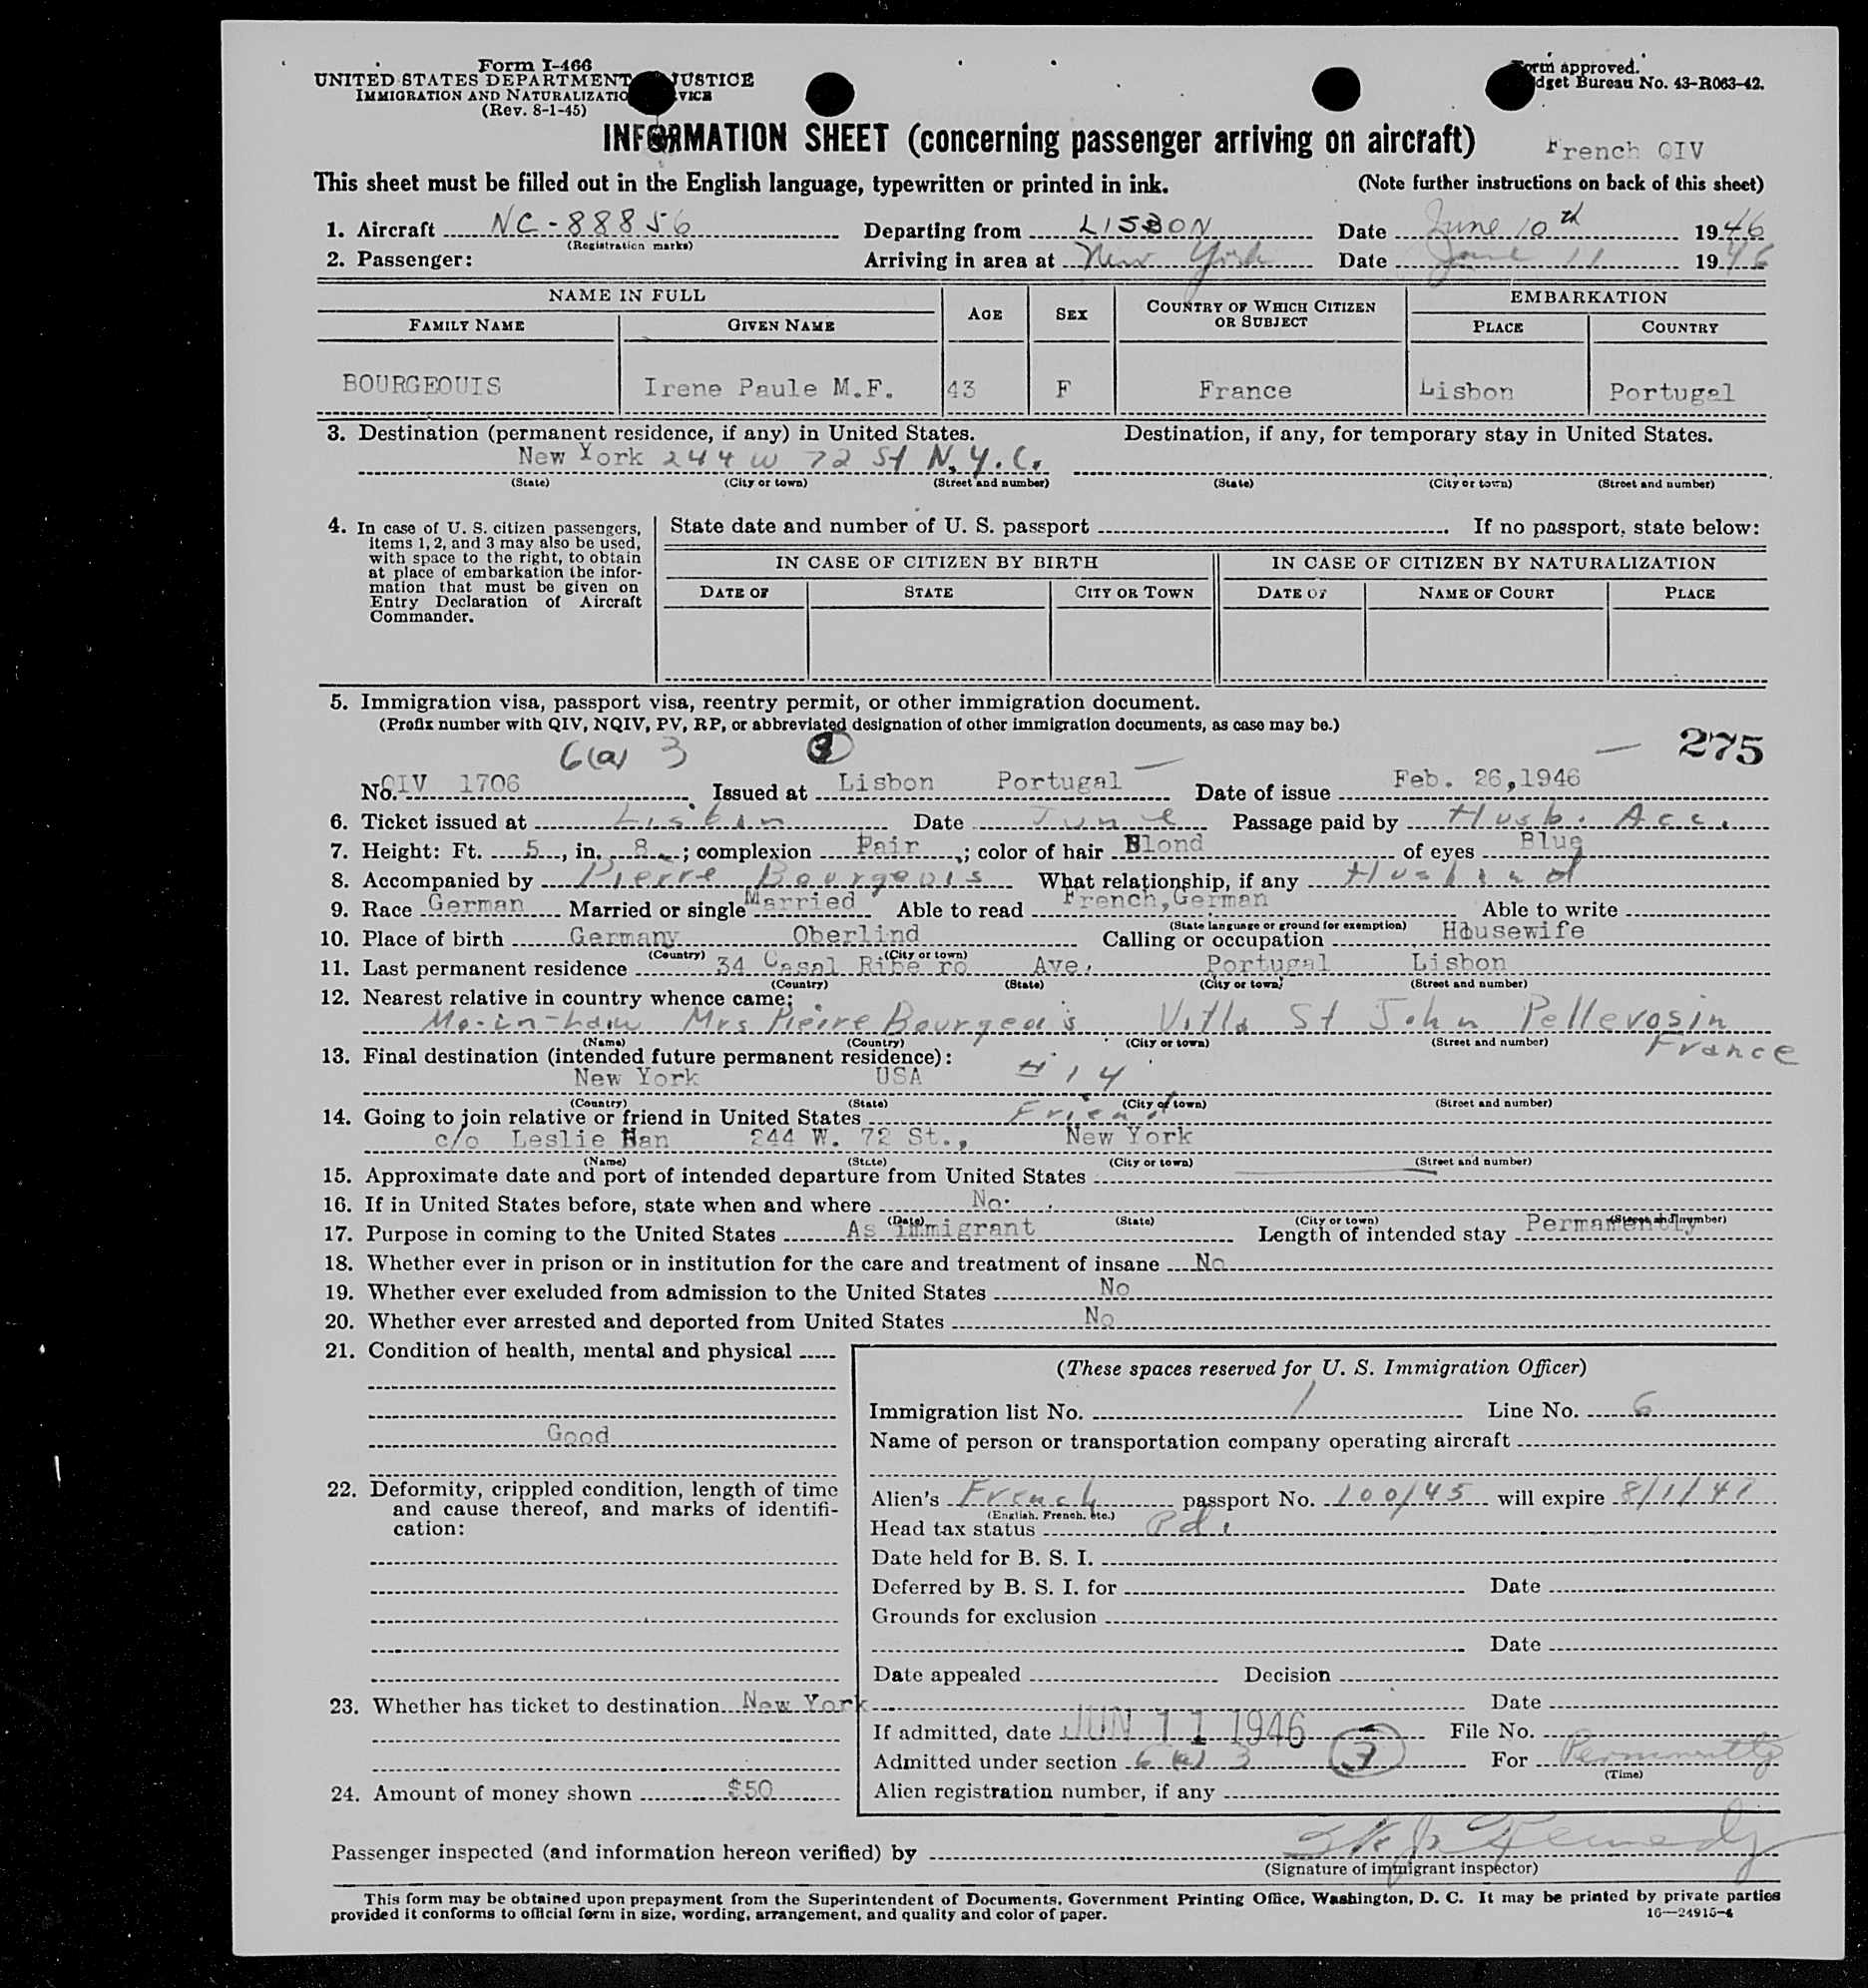 Form I-466
UNITED STATES DEPARTMENT JUSTICE
IMMIGRATION AND NATURALIZATIO VICE
(Rev. 8-1-45)
Form approved.
dget Bureau No. 43-R063-42.
INFORMATION SHEET (concerning passenger arriving on aircraft)
French QIV
This sheet must be filled out in the English language, typewritten or printed in ink. (Note further instructions on back of this sheet)
1. Aircraft NC-88856 Departing from LISBON Date June 10th 1946
(Registration marks)
2. Passenger: Arriving in area at New York Date June 11 1946
NAME IN FULL AGE SEX COUNTRY OF WHICH CITIZEN OR SUBJECT EMBARKATION
FAMILY NAME GIVEN NAME PLACE COUNTRY
BOURGEOUIS Irene Paule M.F. 43 F France Lisbon Portugal
3. Destination (permanent residence, if any) in United States. Destination, if any, for temporary stay in United States.
New York 244 W 72 St N.Y.C.
(State) (City or town) (Street and number) (State) (City or town) (Street and number)
4. In case of U. S. citizen passengers, items 1, 2, and 3 may also be used, with space to the right, to obtain at place of embarkation the information that must be given on Entry Declaration of Aircraft Commander.
State date and number of U. S. passport . If no passport, state below:
IN CASE OF CITIZEN BY BIRTH IN CASE OF CITIZEN BY NATURALIZATION
DATE OF STATE CITY OR TOWN DATE OF NAME OF COURT PLACE
5. Immigration visa, passport visa, reentry permit, or other immigration document.
(Prefix number with QIV, NQIV, PV, RP, or abbreviated designation of other immigration documents, as case may be.)
6(a) 3 3 — 275
No. QIV 1706 Issued at Lisbon Portugal Date of issue Feb. 26,1946
6. Ticket issued at Lisbon Date June Passage paid by Husb. Acc.
7. Height: Ft. 5, in. 8; complexion Fair; color of hair Blond of eyes Blue
8. Accompanied by Pierre Bourgeois What relationship, if any Husband
9. Race German Married or single Married Able to read French,German Able to write
(State language or ground for exemption)
10. Place of birth Germany Oberlind Calling or occupation Housewife
(Country) (City or town)
11. Last permanent residence 34 Casal Ribe ro Ave. Portugal Lisbon
(Country) (State) (City or town) (Street and number)
12. Nearest relative in country whence came:
Mo-in-Law Mrs Pierre Bourgeois Villa St John Pellevosin France
(Name) (Country) (City or town) (Street and number)
13. Final destination (intended future permanent residence):
New York USA #14
(Country) (State) (City or town) (Street and number)
14. Going to join relative or friend in United States Friend
c/o Leslie Han 244 W. 72 St., New York
(Name) (State) (City or town) (Street and number)
15. Approximate date and port of intended departure from United States
16. If in United States before, state when and where No.
(Date) (State) (City or town) (Street and number)
17. Purpose in coming to the United States As immigrant Length of intended stay Permamently
18. Whether ever in prison or in institution for the care and treatment of insane No
19. Whether ever excluded from admission to the United States No
20. Whether ever arrested and deported from United States No
21. Condition of health, mental and physical
Good
22. Deformity, crippled condition, length of time and cause thereof, and marks of identification:
23. Whether has ticket to destination New York
24. Amount of money shown $50
(These spaces reserved for U. S. Immigration Officer)
Immigration list No. 1 Line No. 6
Name of person or transportation company operating aircraft
Alien's French passport No. 100/45 will expire 8/1/47
(English, French, etc.)
Head tax status Pd.
Date held for B. S. I.
Deferred by B. S. I. for Date
Grounds for exclusion
Date
Date appealed Decision
Date
If admitted, date JUN 11 1946 File No.
Admitted under section 6 (a) 3 3 For Permanently
(Time)
Alien registration number, if any
Passenger inspected (and information hereon verified) by Kennedy
(Signature of immigrant inspector)
This form may be obtained upon prepayment from the Superintendent of Documents, Government Printing Office, Washington, D. C. It may be printed by private parties
provided it conforms to official form in size, wording, arrangement, and quality and color of paper. 16—24915-4